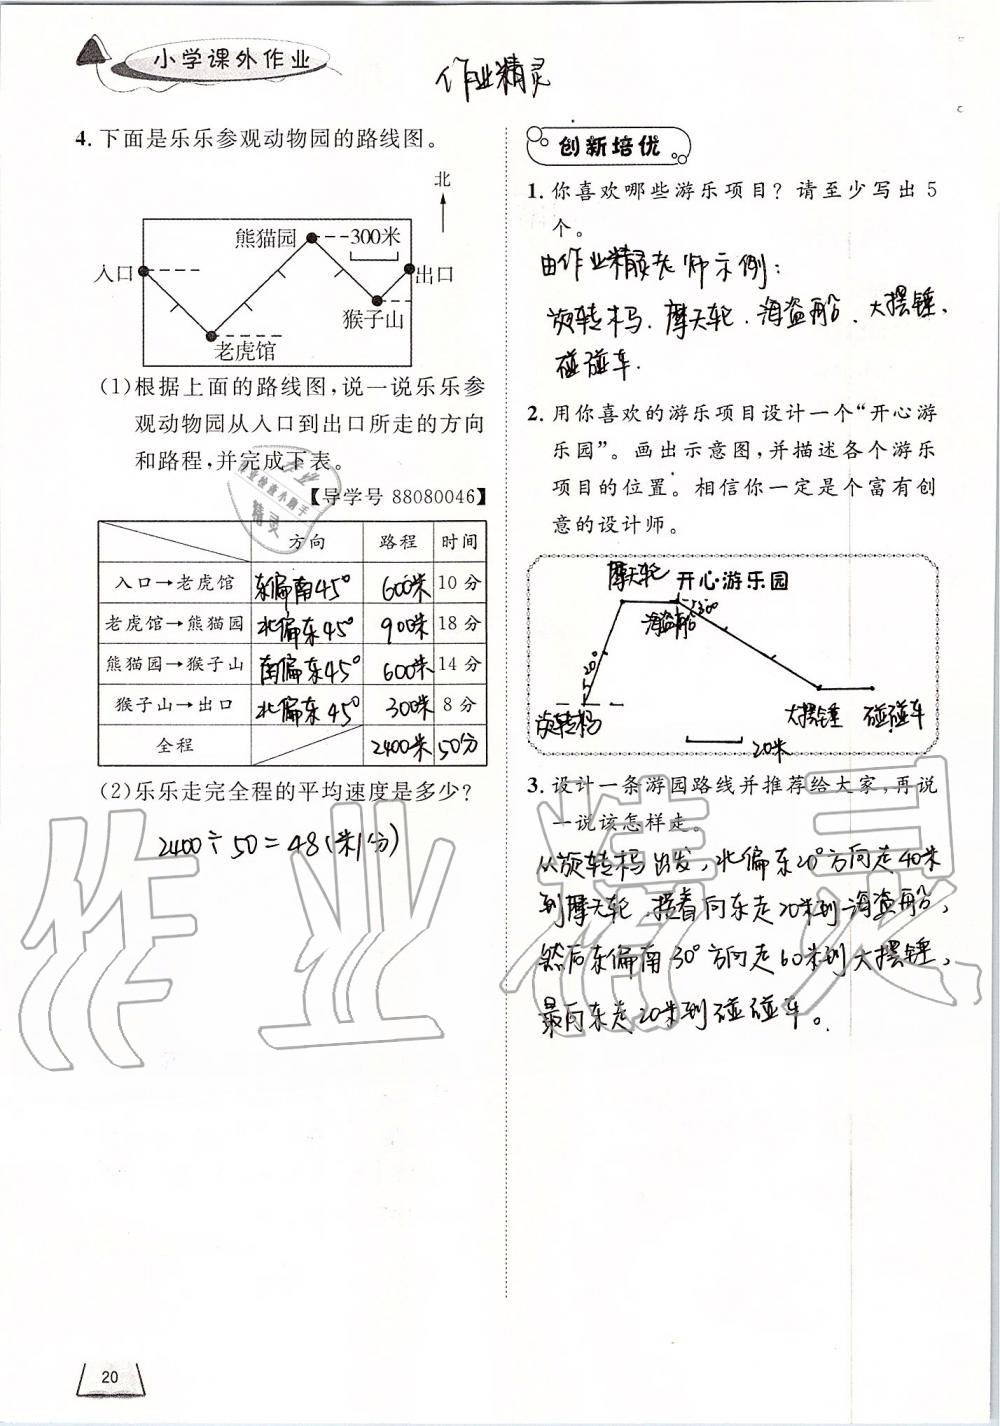 小学课外作业
作业精灵
4. 下面是乐乐参观动物园的路线图。
北
熊猫园
300米
入口
出口
猴子山
老虎馆
(1)根据上面的路线图,说一说乐乐参
观动物园从入口到出口所走的方向
和路程,并完成下表。
【导学号 88080046】
方向 路程 时间
入口→老虎馆 东偏南45° 600米 10 分
老虎馆→熊猫园 北偏东45° 900米 18 分
熊猫园→猴子山 南偏东45° 600米 14 分
猴子山→出口 北偏东45° 300米 8 分
全程 2400米 50分
(2)乐乐走完全程的平均速度是多少?
2400÷50=48(米/分)
创新培优
1. 你喜欢哪些游乐项目? 请至少写出 5
个。
由作业精灵老师示例:
旋转木马、摩天轮、海盗船、大摆锤、
碰碰车.
2. 用你喜欢的游乐项目设计一个“开心游
乐园”。画出示意图,并描述各个游乐
项目的位置。相信你一定是个富有创
意的设计师。
开心游乐园
摩天轮
海盗船
30°
20°
旋转木马
大摆锤
碰碰车
20米
3. 设计一条游园路线并推荐给大家,再说
一说该怎样走。
从旋转木马出发,北偏东20°方向走40米
到摩天轮,接着向东走20米到海盗船,
然后东偏南30°方向走60米到大摆锤,
最向东走20米到碰碰车。
作业精灵
作业
作业检查小助手
精灵
20